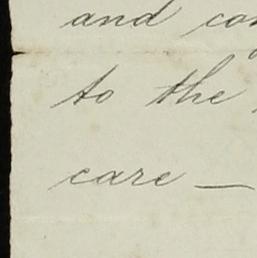 and
to the
care —